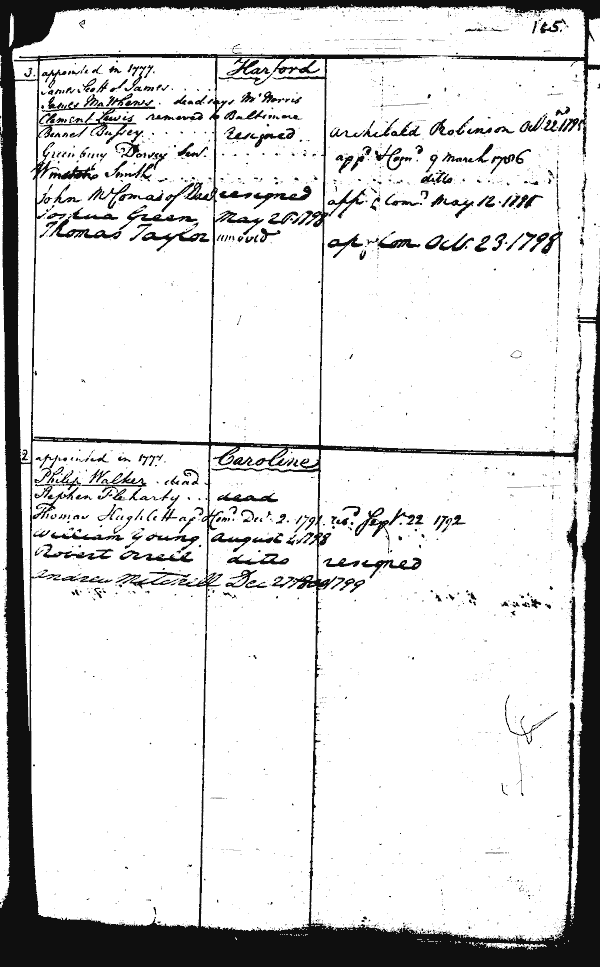 165.
3. appointed in 1777. Harford
James Scott of James.
James Mathews. dead says Mr Morris
Clement Lewis removed to Baltimore
Bennet Bussey resigned Archibald Robinson Oct. 22nd
Greenbury Dorsey Senr. appd & Comd 9 March 1786
Winston Smith ditto
John McComas of resigned app. & Comd May 12. 
Joshua Green May 28. 1798
Thomas Taylor ap. & Com Oct. 23. 1798
2 appointed in 1777. Caroline
Philip Walker. dead
Stephen Fleharty dead
Thomas Hughlett apd Comd Decr. 2. 1791 Sept. 22 1792
William Young August 1798
Robert Orrell ditto resigned
Andrew Mitchell Dec 1799